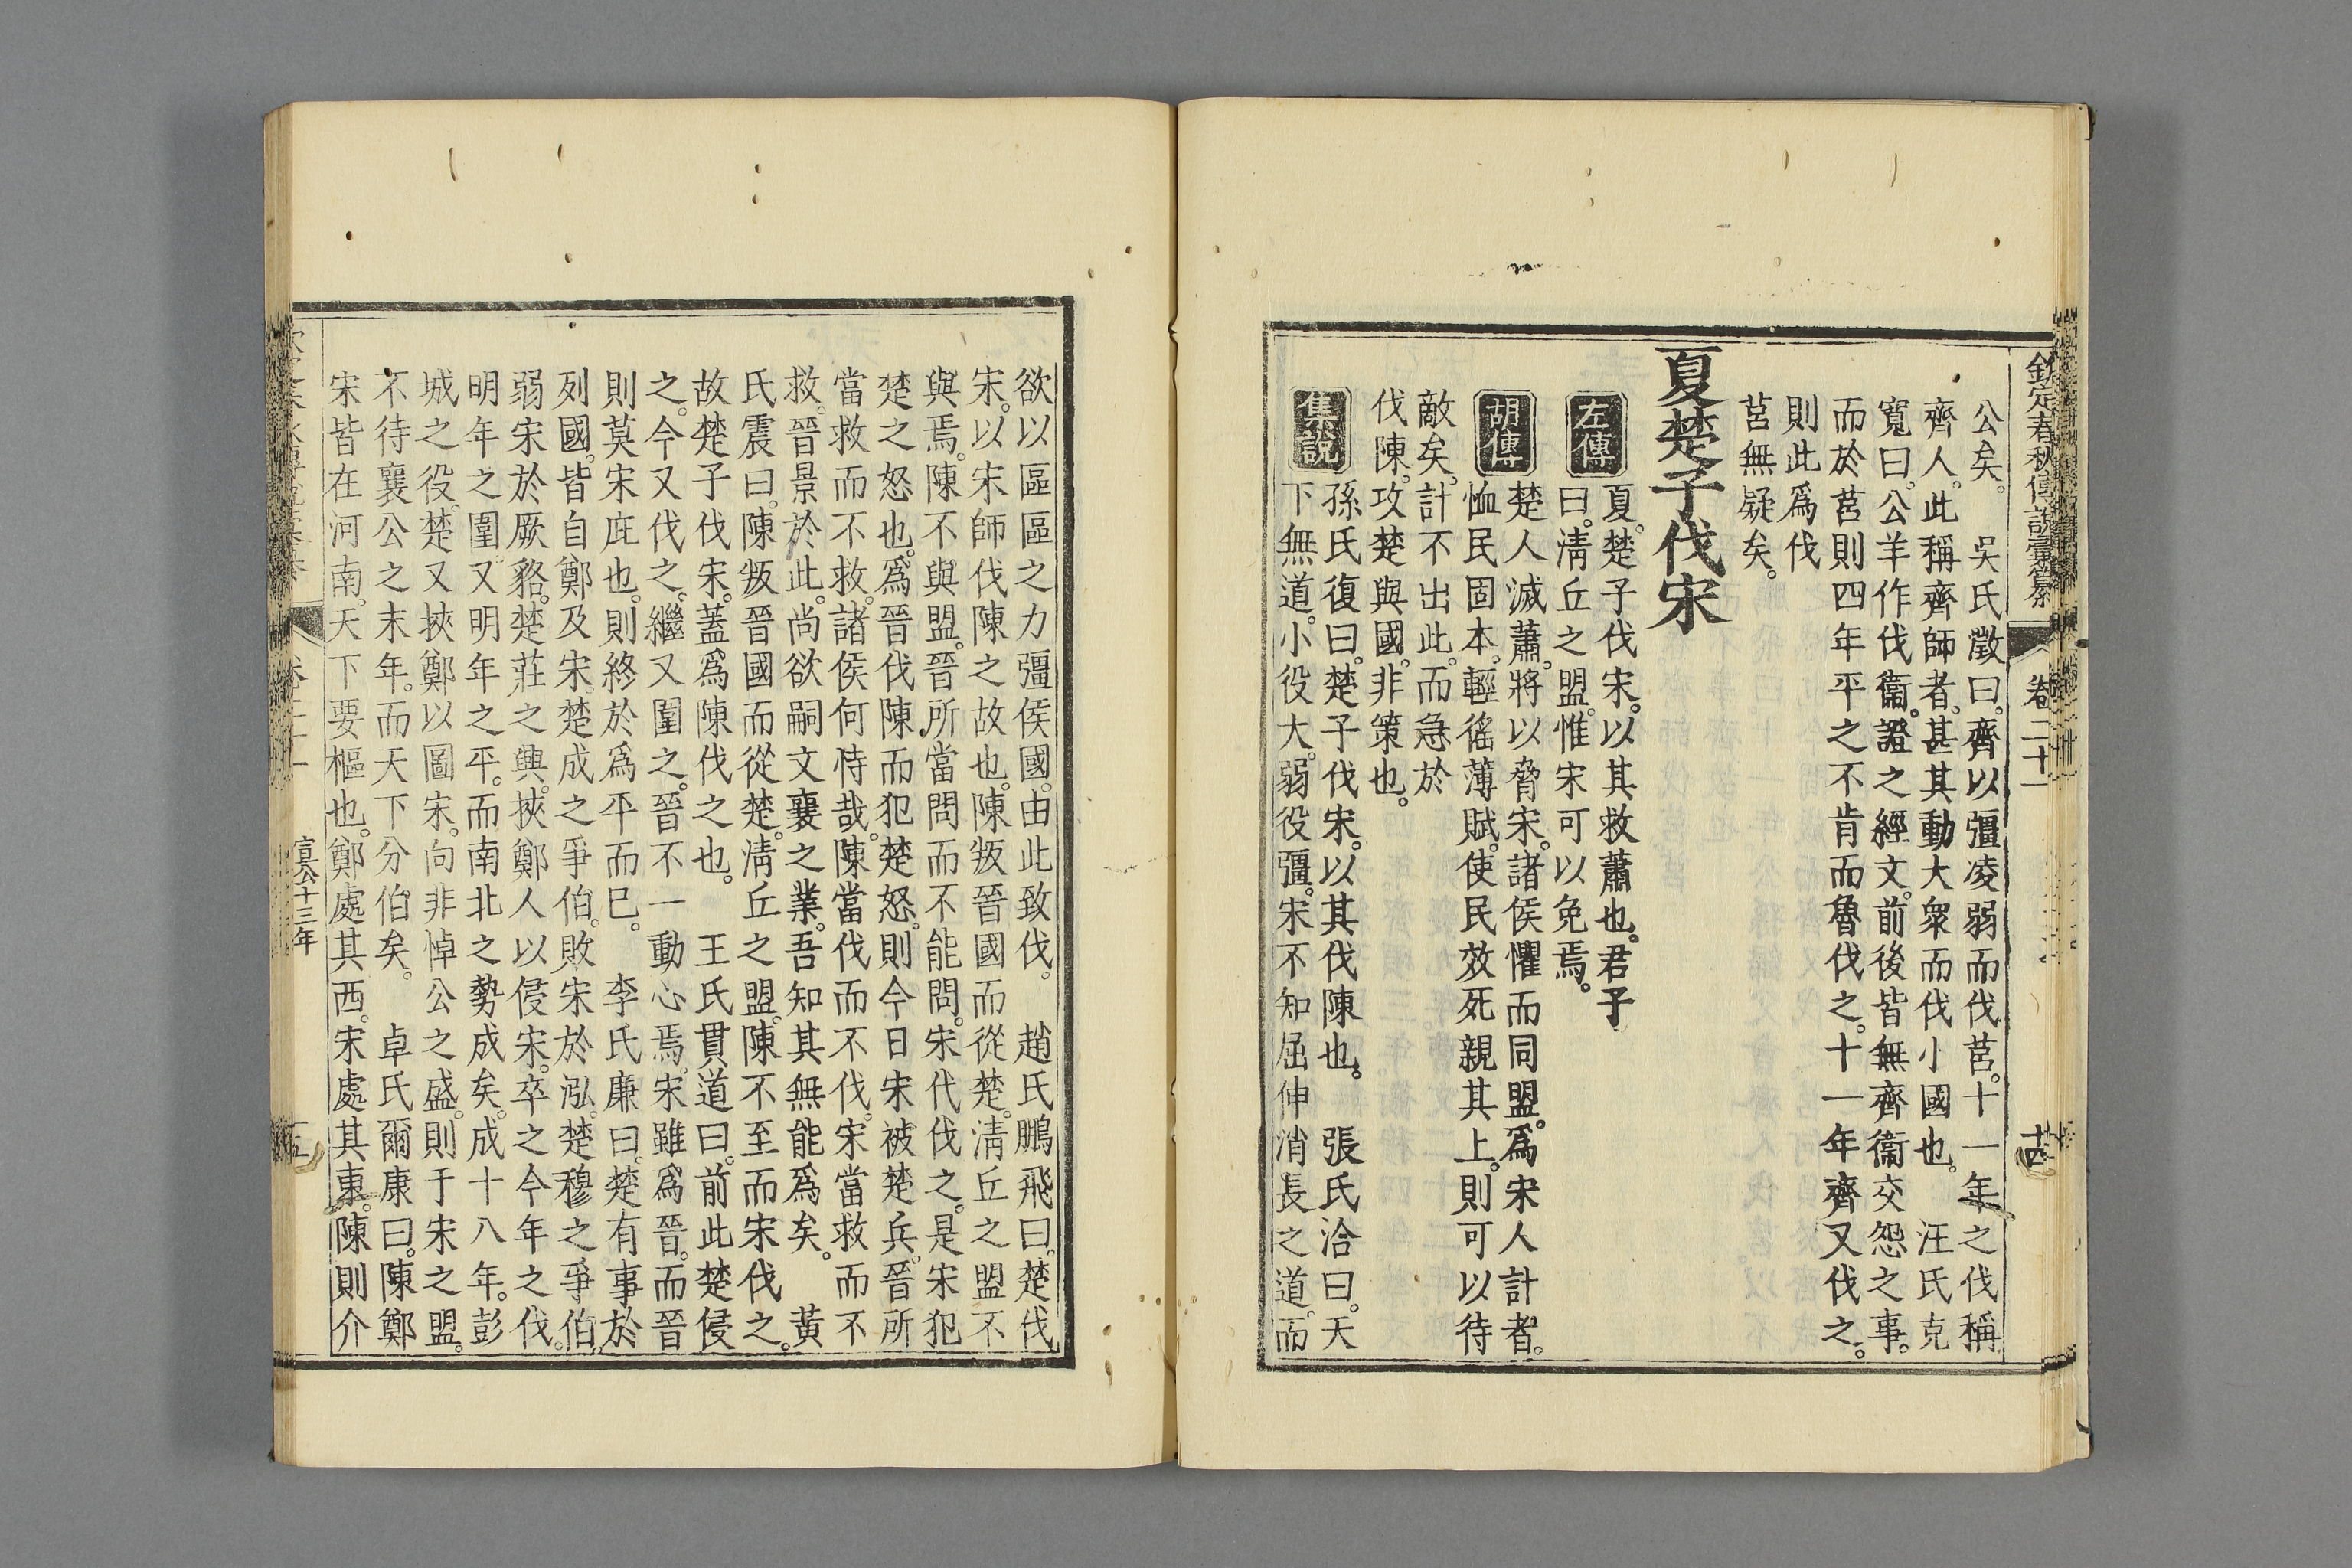 欽定春秋傳說彙纂 卷二十一 十四
公矣。　吳氏澂曰。齊以彊凌弱而伐莒。十一年之伐稱
齊人。此稱齊師者。甚其動大衆而伐小國也。　汪氏克
寬曰。公羊作伐衞。證之經文。前後皆無齊衞交怨之事。
而於莒則四年平之不肯而魯伐之。十一年齊又伐之。
則此爲伐
莒無疑矣。
夏楚子伐宋
左傳　夏。楚子伐宋。以其救蕭也。君子
曰。淸丘之盟。惟宋可以免焉。
胡傳　楚人滅蕭。將以脅宋。諸侯懼而同盟。爲宋人計者。
恤民固本。輕徭薄賦。使民效死親其上。則可以待
敵矣。計不出此。而急於
伐陳。攻楚與國。非策也。
集說　孫氏復曰。楚子伐宋。以其伐陳也。　張氏洽曰。天
下無道。小役大。弱役彊。宋不知屈伸消長之道。而
欲以區區之力彊侯國。由此致伐。　趙氏鵬飛曰。楚伐
宋。以宋師伐陳之故也。陳叛晉國而從楚。淸丘之盟不
與焉。陳不與盟。晉所當問而不能問。宋代伐之。是宋犯
楚之怒也。爲晉伐陳而犯楚怒。則今日宋被楚兵。晉所
當救而不救。諸侯何恃哉。陳當伐而不伐。宋當救而不
救。晉景於此。尚欲嗣文襄之業。吾知其無能爲矣。　黃
氏震曰。陳叛晉國而從楚。淸丘之盟。陳不至而宋伐之。
故楚子伐宋。蓋爲陳伐之也。　王氏貫道曰。前此楚侵
之。今又伐之。繼又圍之。晉不一動心焉。宋雖爲晉。而晉
則莫宋庇也。則終於爲平而已。　李氏廉曰。楚有事於
列國。皆自鄭及宋。楚成之爭伯。敗宋於泓。楚穆之爭伯。
弱宋於厥貉。楚莊之興。挾鄭人以侵宋。卒之今年之伐。
明年之圍。又明年之平。而南北之勢成矣。成十八年。彭
城之役。楚又挾鄭以圖宋。向非悼公之盛。則于宋之盟。
不待襄公之末年。而天下分伯矣。　卓氏爾康曰。陳鄭
宋皆在河南。天下要樞也。鄭處其西。宋處其東。陳則介
宣公十三年